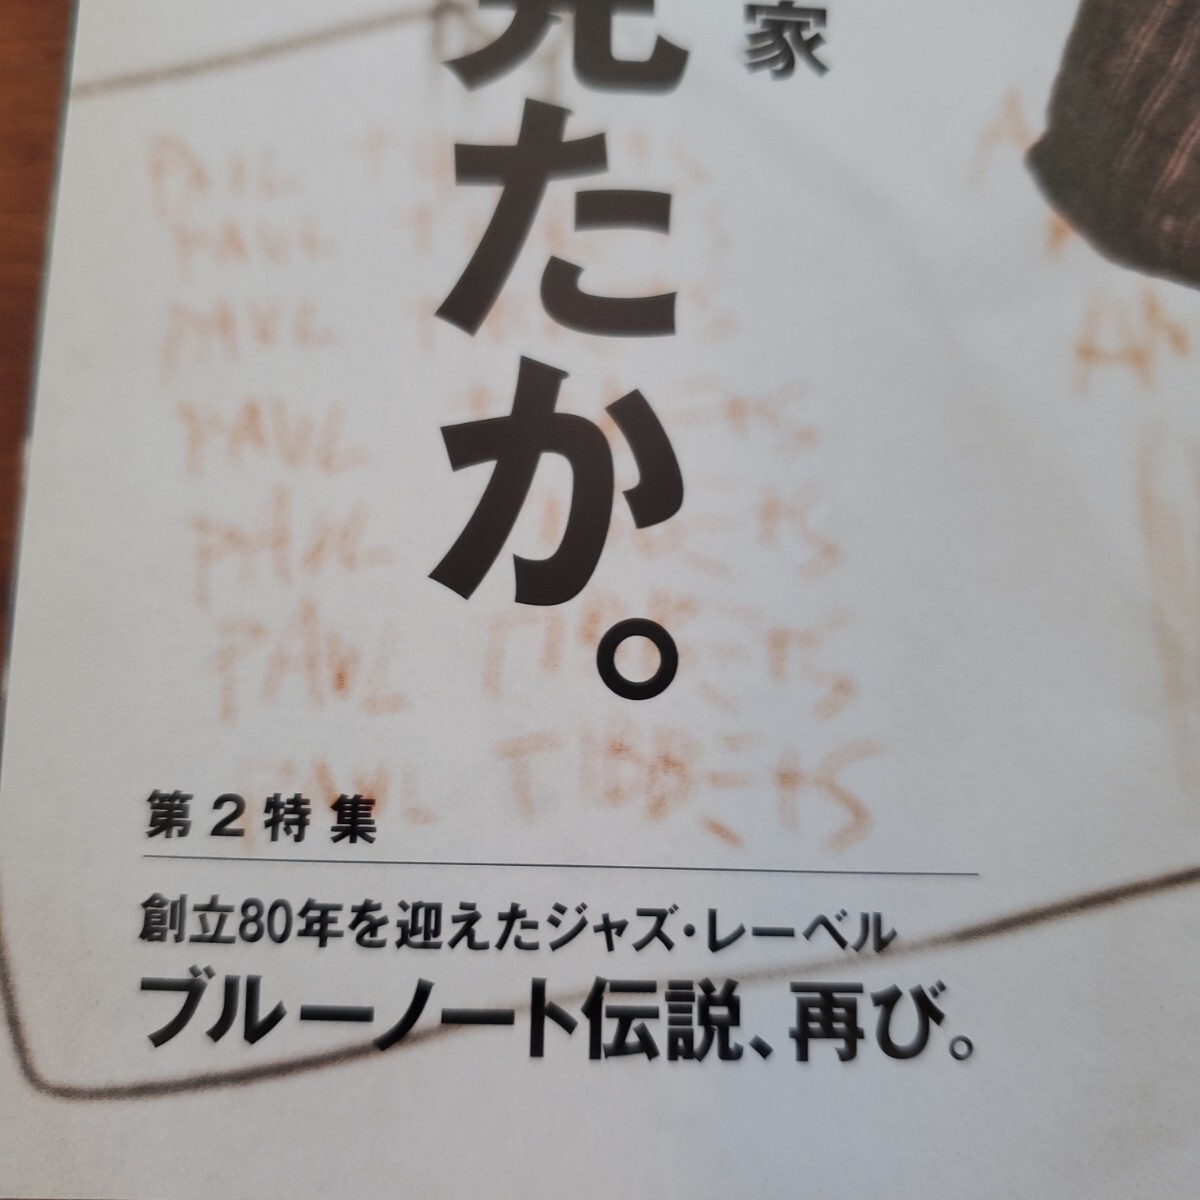 家
見たか。
PAUL
PAUL
PAUL
PAUL
PAUL
PAUL TIBBETS
PAUL TIBBETS
第2特集
創立80年を迎えたジャズ・レーベル
ブルーノート伝説、再び。